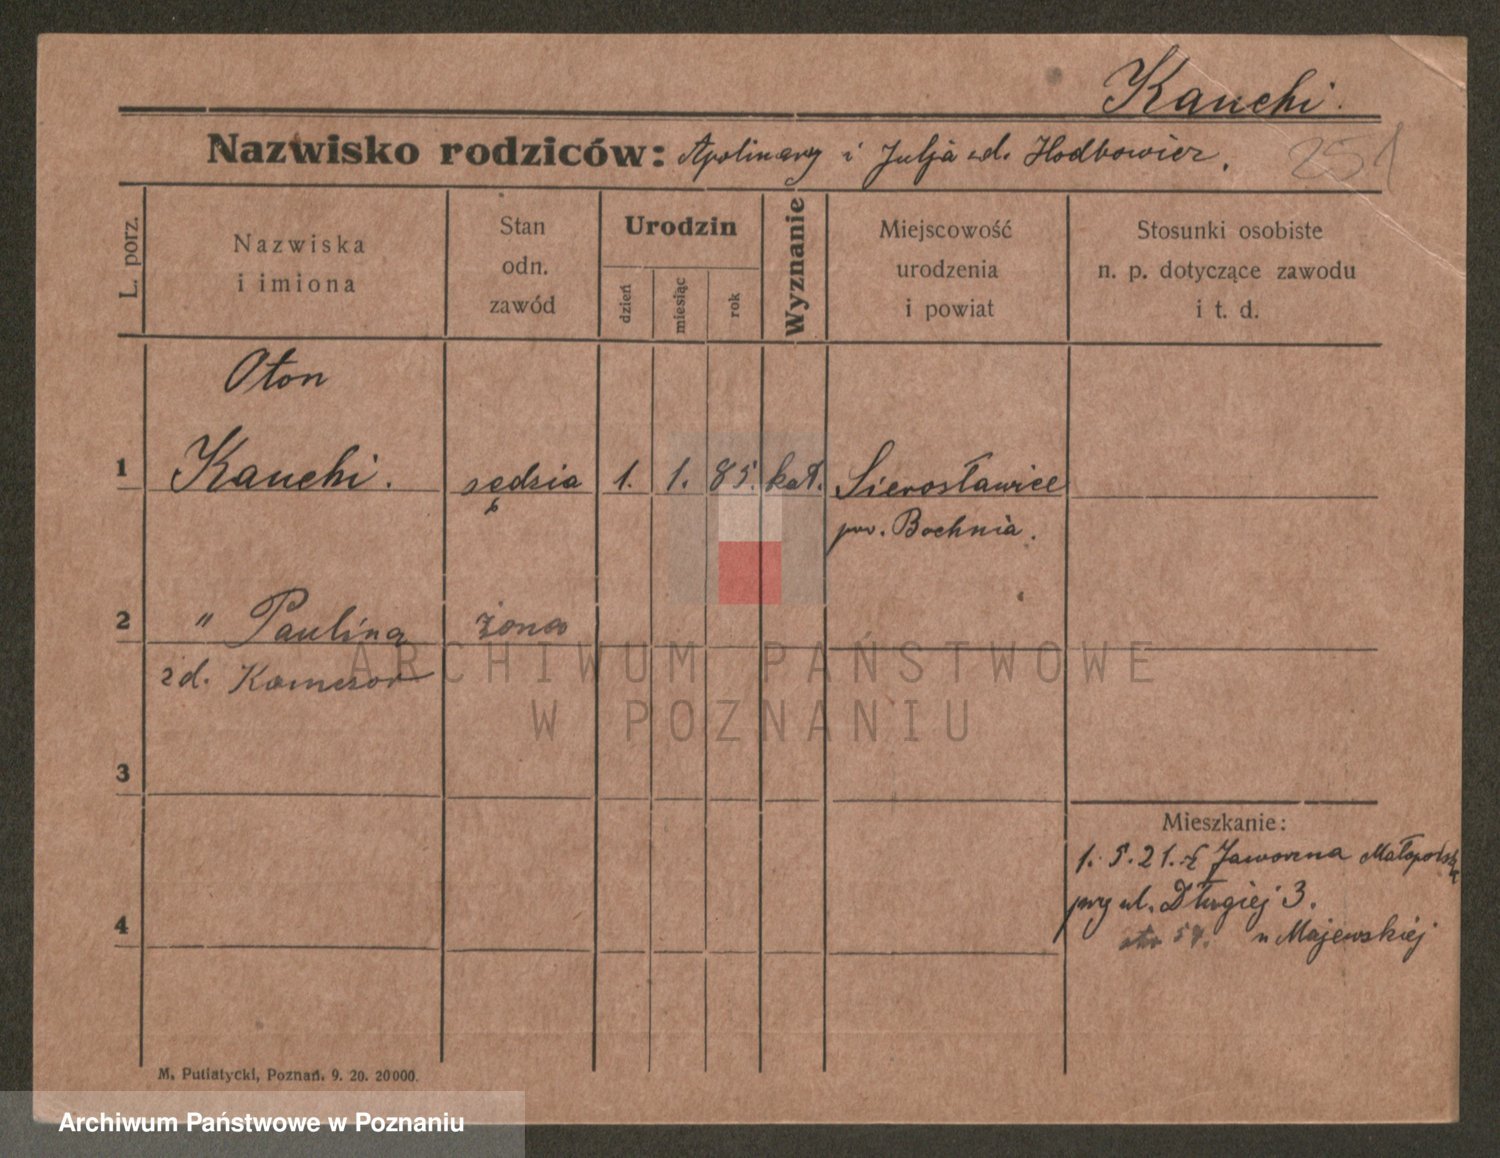 Kauchi.
251
Nazwisko rodziców: Apolinary i Julja zd. Hodbowicz.
L. porz.
Nazwiska
i imiona
Stan
odn.
zawód
Urodzin
dzień
miesiąc
rok
Wyznanie
Miejscowość
urodzenia
i powiat
Stosunki osobiste
n. p. dotyczące zawodu
i t. d.
Oton
1 Kauchi. sędzia 1. 1. 85. kat. Sierosławice
pow. Bochnia.
2 " Paulina żona
zd.
3
Mieszkanie:
1. 5. 21. z Jaworzna Małopolska
przy ul. Długiej 3.
4
u Majewskiej
M. Putiatycki, Poznań. 9. 20. 20000.
ARCHIWUM PAŃSTWOWE
W POZNANIU
Archiwum Państwowe w Poznaniu